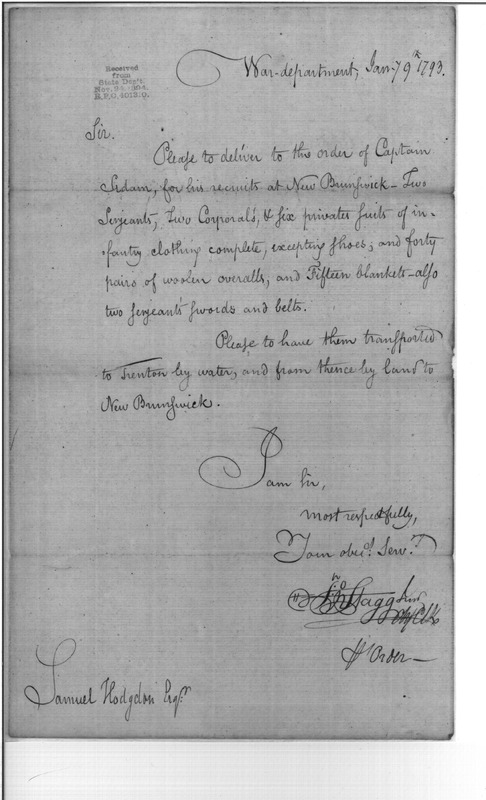 War-department, Jany 9th 1793.
Received
from
State Dept.
Sir.
Please to deliver to the order of Captain
for his recruits at New Brunswick - Two
Serjeants, Two Corporal's, & six privates suits of in-
fantry clothing complete, excepting shoes; and forty
pairs of woolen overalls, and Fifteen blankets - also
two serjeant's swords and belts.
Please to have them transported
to Trenton by water, and from thence by land to
New Brunswick.
I am Sir,
most respectfully,
Your obedt. Servt.
Jno Stagg Junr
Chf Clk
Pr Order -
Samuel Hodgdon Esqr.